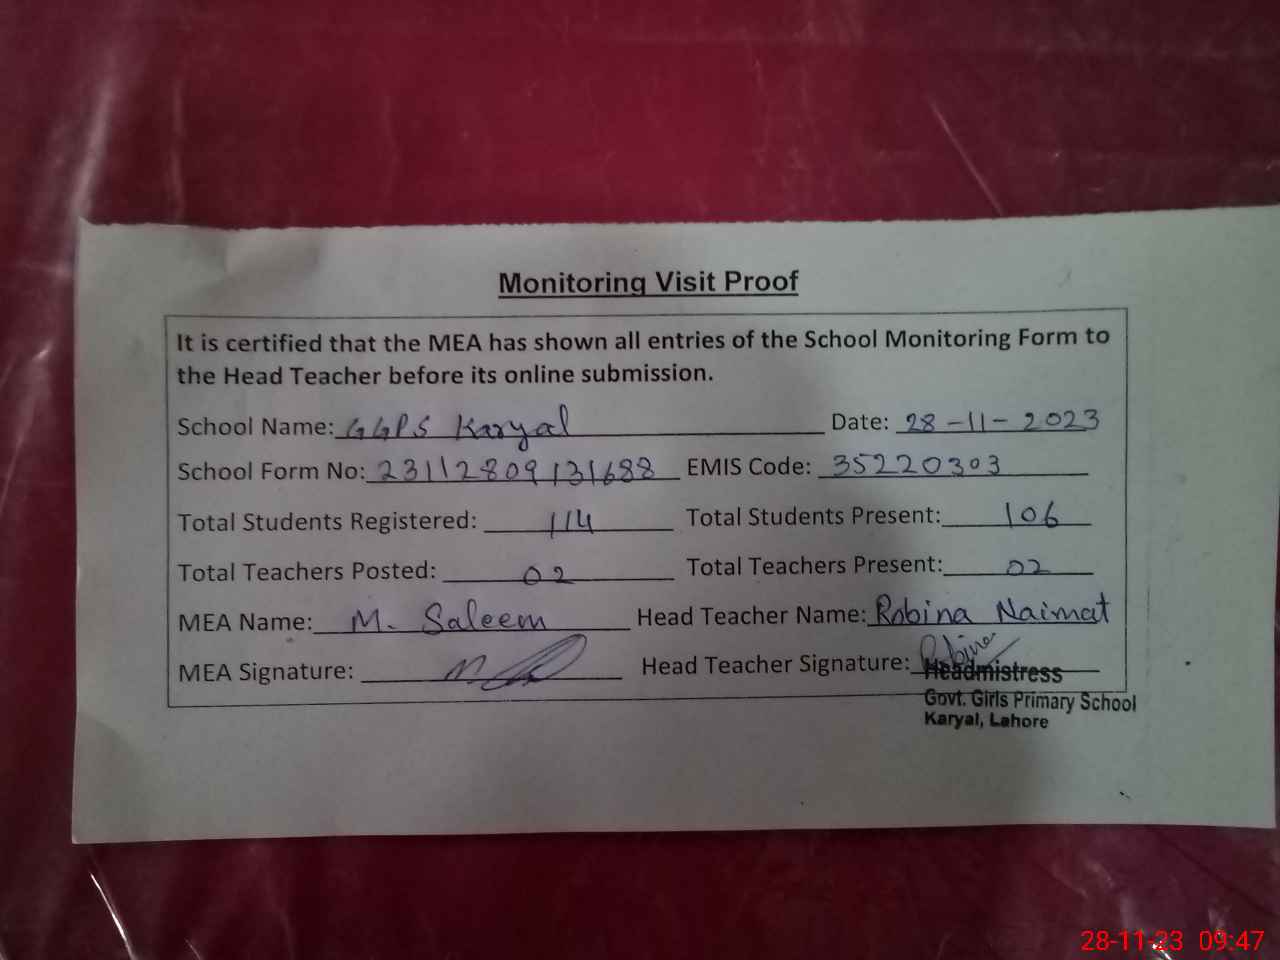 Monitoring Visit Proof
It is certified that the MEA has shown all entries of the School Monitoring Form to
the Head Teacher before its online submission.
School Name: GGPS Karyal Date: 28-11-2023
School Form No: 23112809131688 EMIS Code: 35220303
Total Students Registered: 114 Total Students Present: 106
Total Teachers Posted: 02 Total Teachers Present: 02
MEA Name: M. Saleem Head Teacher Name: Robina Naimat
MEA Signature: Head Teacher Signature: Robina
Headmistress
Govt. Girls Primary School
Karyal, Lahore
28-11-23 09:47